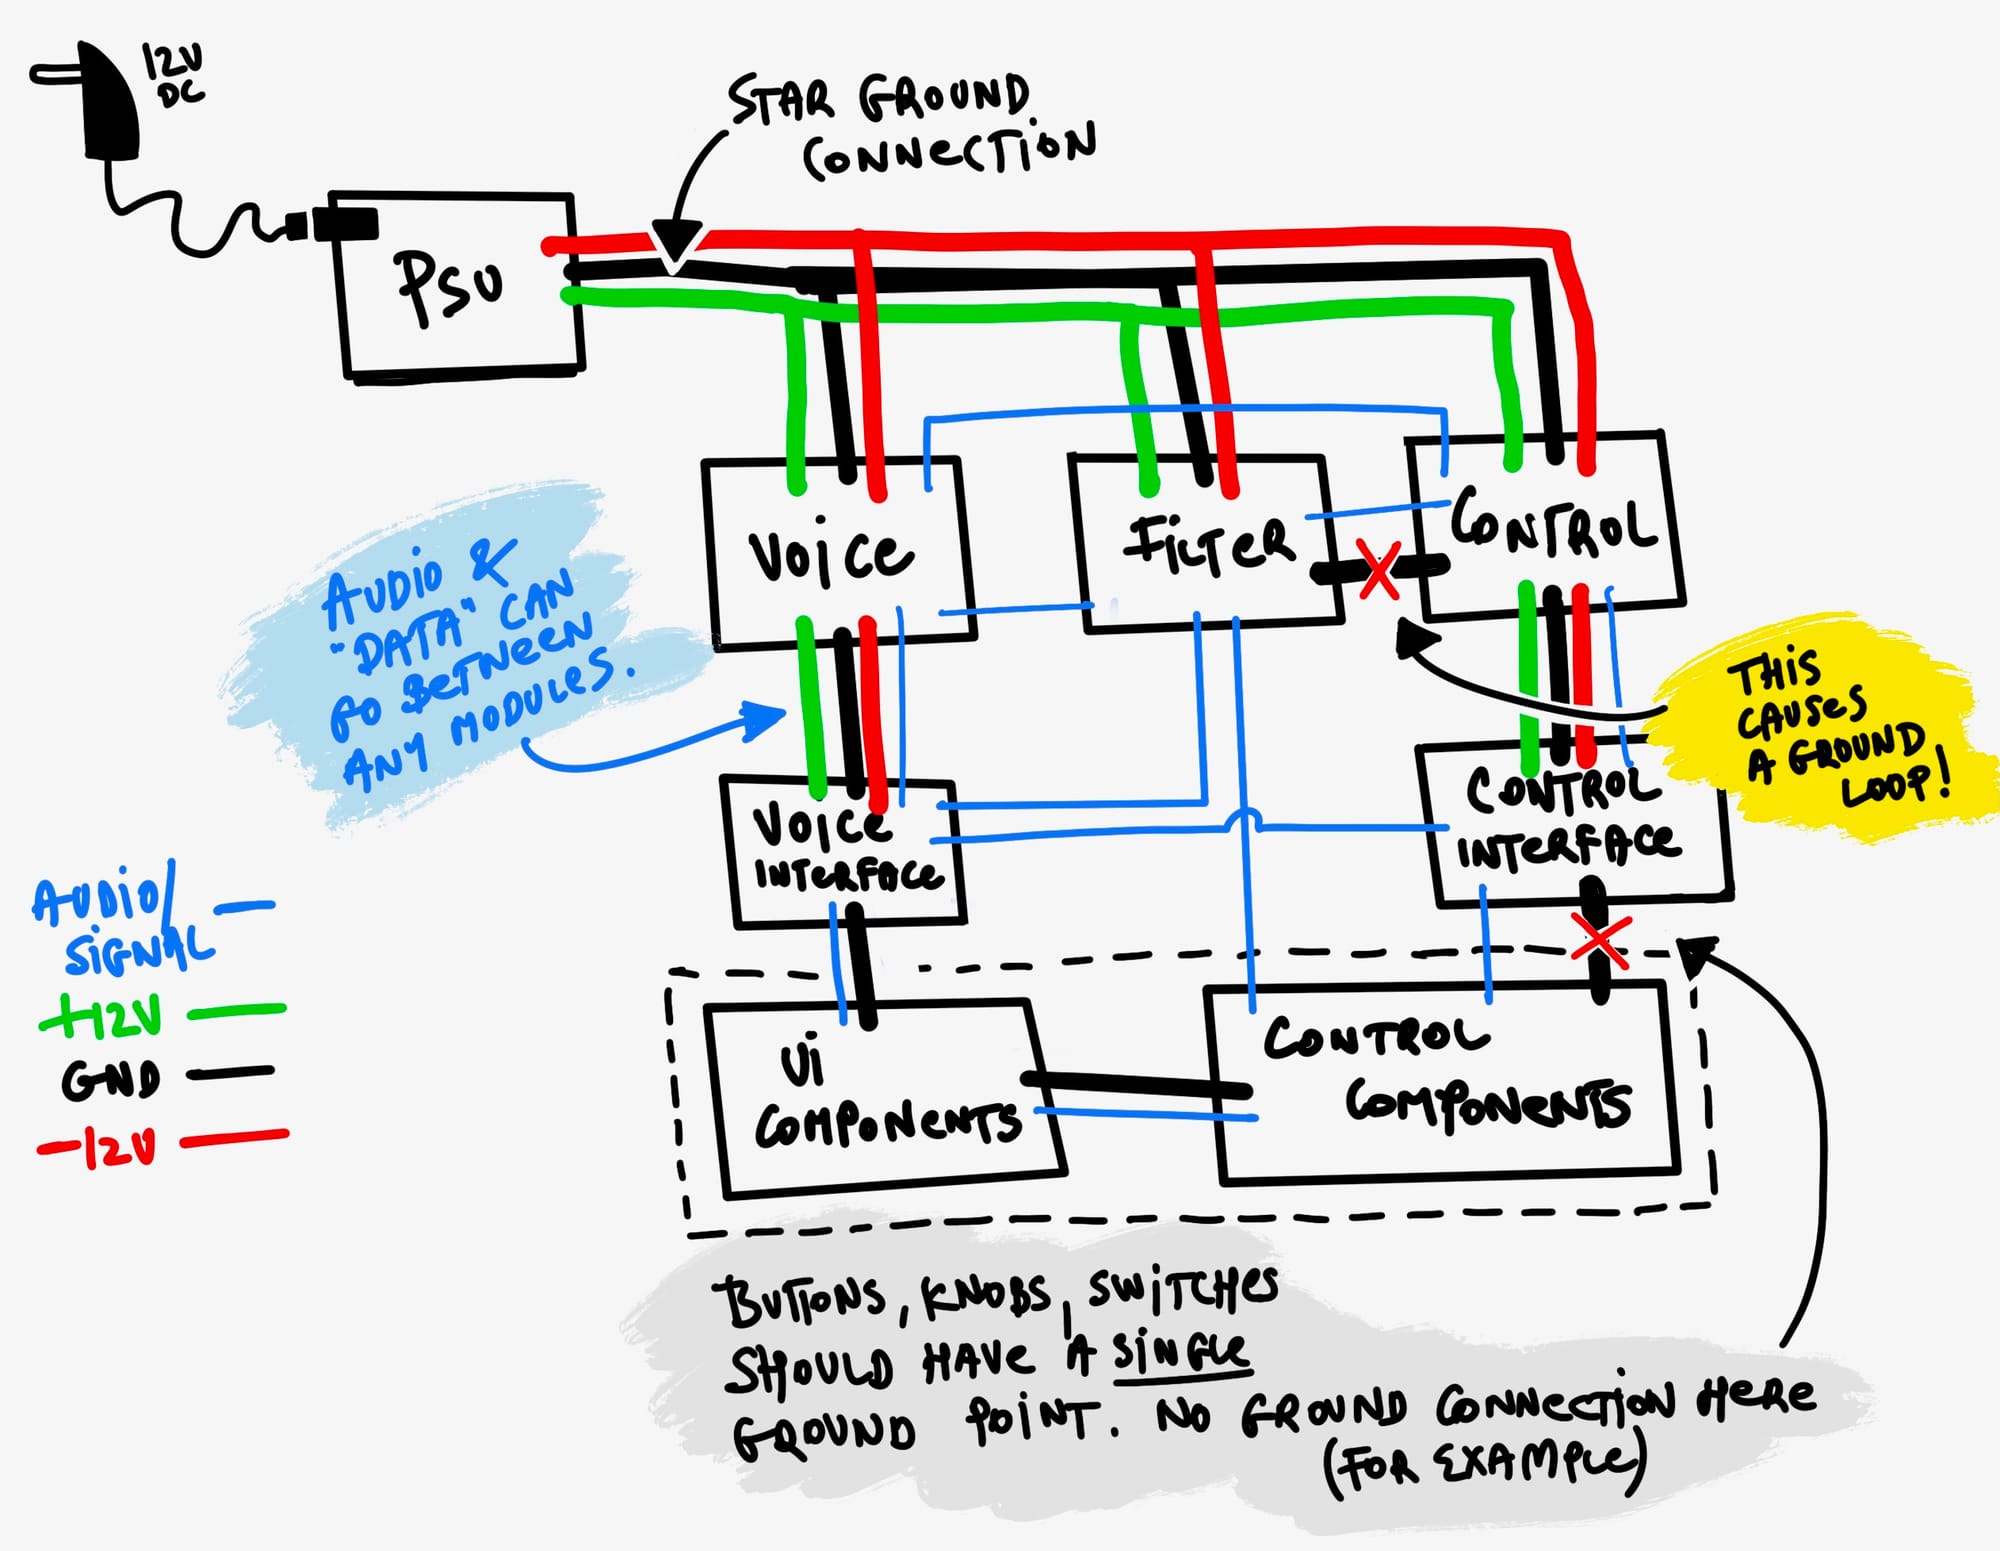 12V
DC
STAR GROUND
CONNECTION
PSU
VOICE
FILTER
CONTROL
AUDIO &
"DATA" CAN
GO BETWEEN
ANY MODULES.
THIS
CAUSES
A GROUND
LOOP!
VOICE
INTERFACE
CONTROL
INTERFACE
AUDIO/
SIGNAL
+12V
GND
-12V
UI
COMPONENTS
CONTROL
COMPONENTS
BUTTONS, KNOBS, SWITCHES
SHOULD HAVE A SINGLE
GROUND POINT. NO GROUND CONNECTION HERE
(FOR EXAMPLE)